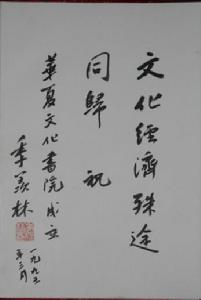 文化經濟殊途
同歸 祝
華夏文化書院成立
季羡林
一九九五
年三月